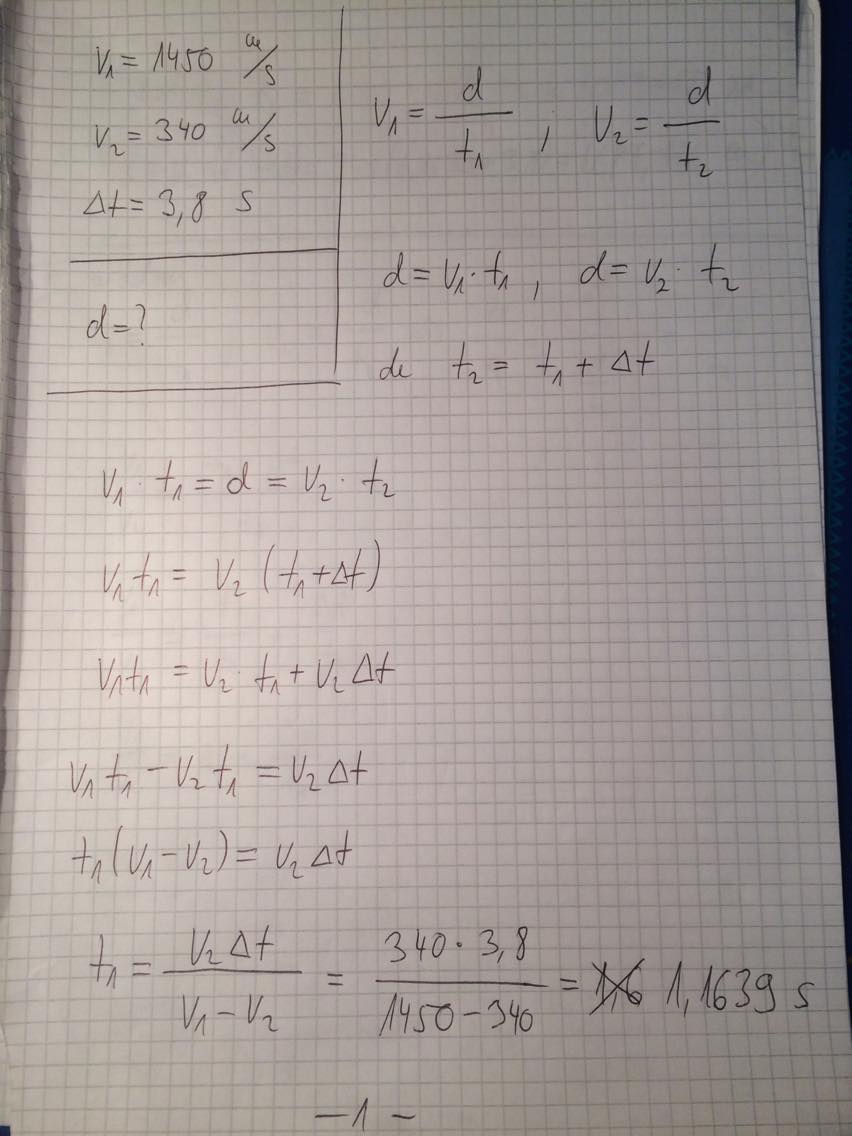 V₁ = 1450 m/s
V₂ = 340 m/s
Δt = 3,8 s
d = ?
V₁ = d/t₁ , V₂ = d/t₂
d = V₁ · t₁ , d = V₂ · t₂
de t₂ = t₁ + Δt
V₁ · t₁ = d = V₂ · t₂
V₁ t₁ = V₂ (t₁ + Δt)
V₁ t₁ = V₂ · t₁ + V₂ Δt
V₁ t₁ − V₂ t₁ = V₂ Δt
t₁ (V₁ − V₂) = V₂ Δt
t₁ = V₂ Δt / V₁ − V₂ = 340 · 3,8 / 1450 − 340 = 1,1639 s
— 1 —